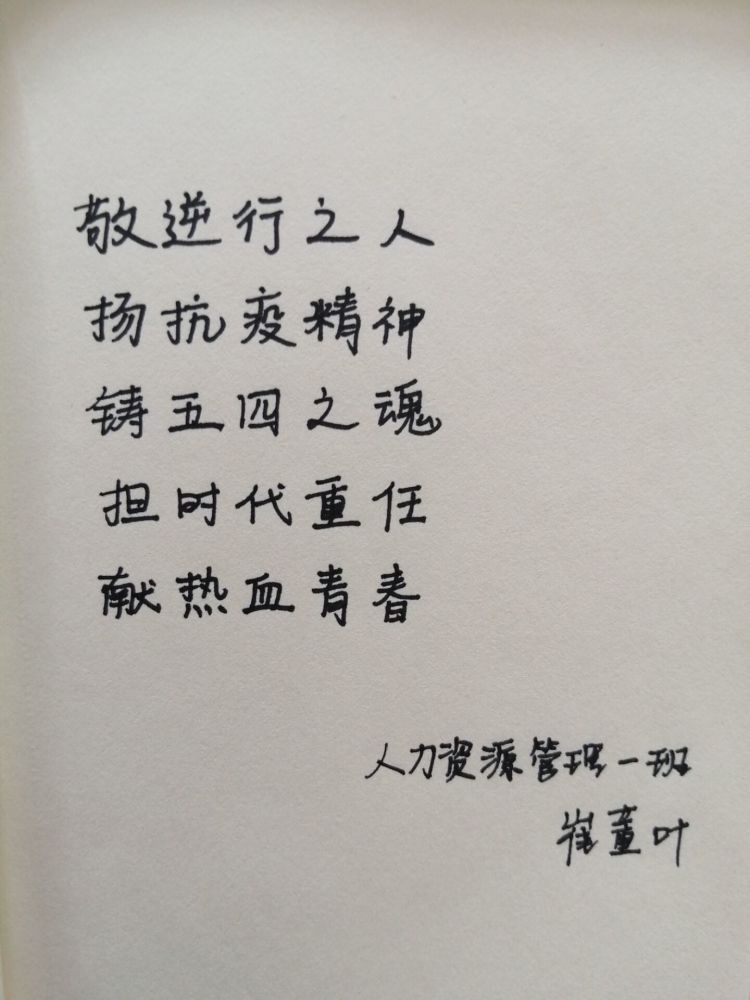 敬逆行之人
扬抗疫精神
铸五四之魂
担时代重任
献热血青春
人力资源管理一班
崔董叶